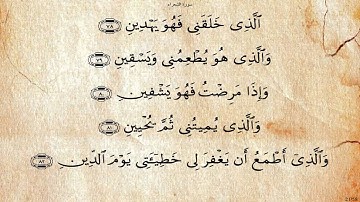 سورة الشعراء
ٱلَّذِى خَلَقَنِى فَهُوَ يَهْدِينِ ٧٨
وَٱلَّذِى هُوَ يُطْعِمُنِى وَيَسْقِينِ ٧٩
وَإِذَا مَرِضْتُ فَهُوَ يَشْفِينِ ٨٠
وَٱلَّذِى يُمِيتُنِى ثُمَّ يُحْيِينِ ٨١
وَٱلَّذِىٓ أَطْمَعُ أَن يَغْفِرَ لِى خَطِيٓـَٔتِى يَوْمَ ٱلدِّينِ ٨٢